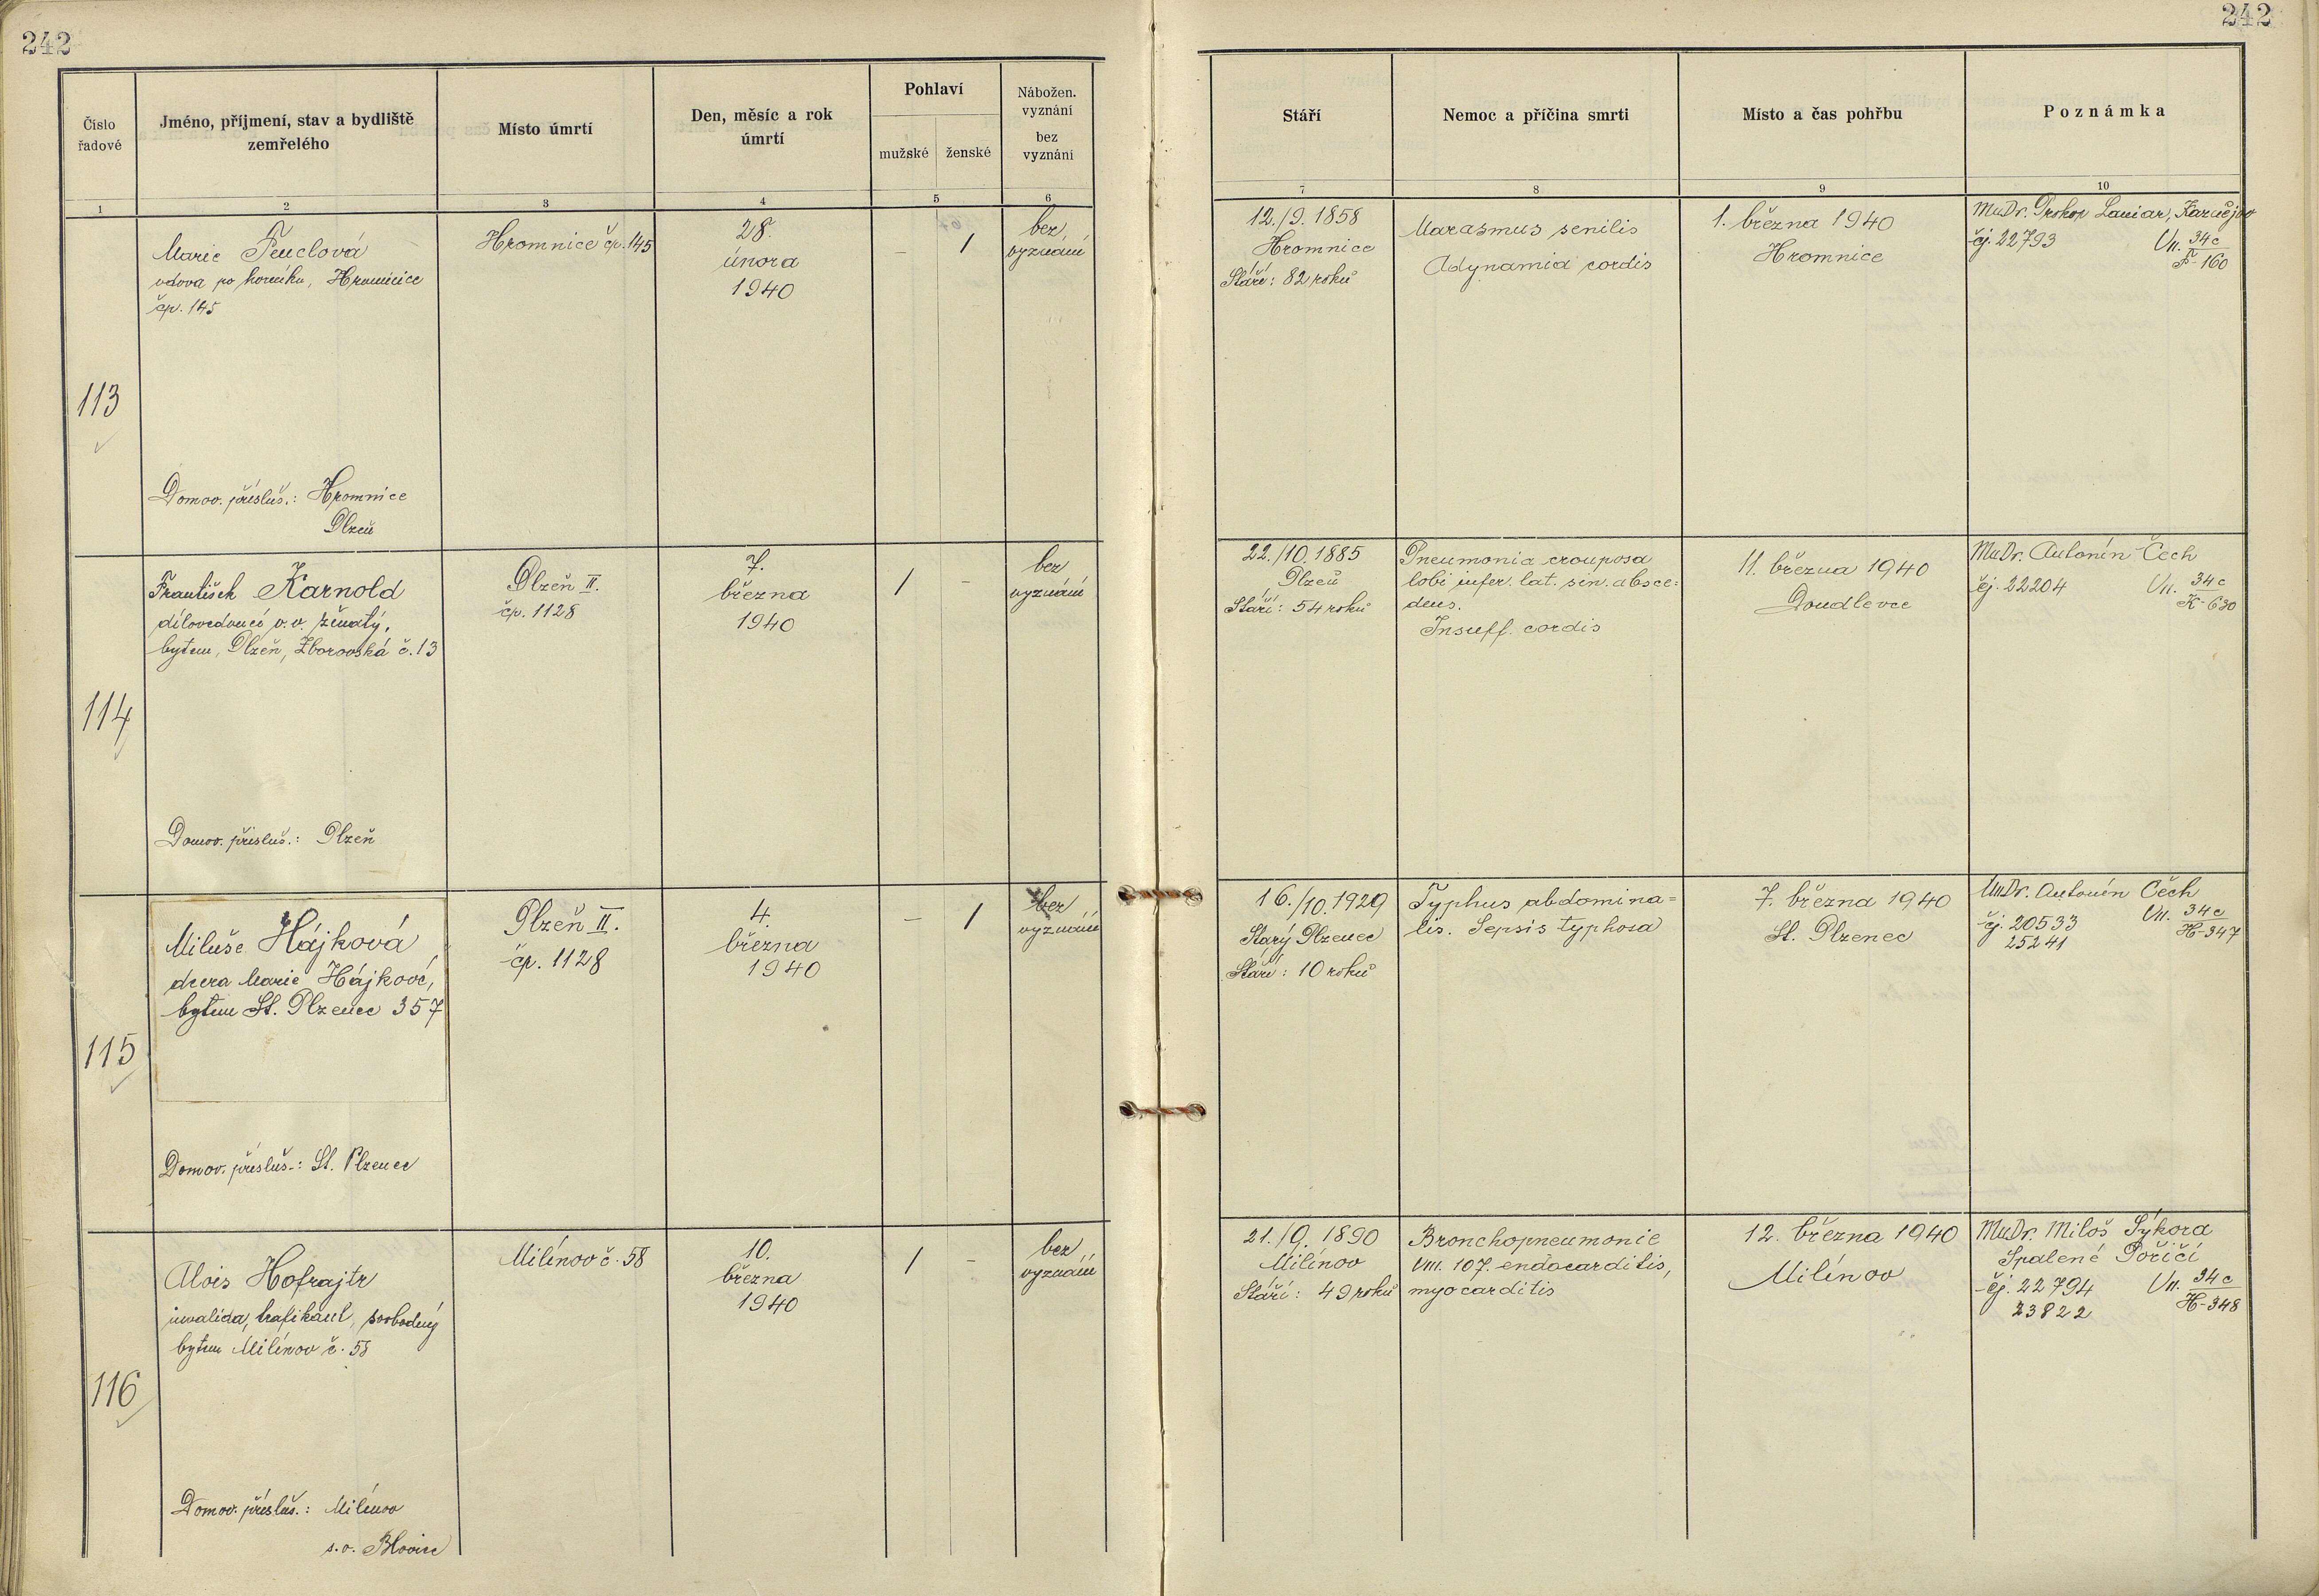 242
242
Číslo řadové
Jméno, příjmení, stav a bydliště
zemřelého
Místo úmrtí
Den, měsíc a rok
úmrtí
Pohlaví
mužské
ženské
Nábožen.
vyznání
bez
vyznání
Stáří
Nemoc a příčina smrti
Místo a čas pohřbu
Poznámka
1
2
3
4
5
6
7
8
9
10
113
Marie Feuclová
vdova po horníku, Hromnice
čp. 145
Domov. přísluš.: Hromnice
Plzeň
Hromnice čp. 145
28.
února
1940
–
1
bez
vyznání
12./9. 1858
Hromnice
Stáří: 82 roků
Marasmus senilis
Adynamia cordis
1. března 1940
Hromnice
MuDr. Prokop
čj. 22793
VII. 34c
F-160
114
František Karnold
dílovedoucí v.v. ženatý,
bytem, Plzeň, Zborovská č. 13
Domov. přísluš.: Plzeň
Plzeň II.
čp. 1128
7.
března
1940
1
–
bez
vyznání
22./10. 1885
Plzeň
Stáří: 54 roků
Pneumonia crouposa
lobi infer. lat. sin. absce=
dens.
Insuff. cordis
11. března 1940
Doudlevce
MuDr. Antonín Čech
čj. 22204
VII. 34c
K-630
115
Miluše Hájková
dcera Marie Hájkové,
bytem St. Plzenec 357
Domov. přísluš.: St. Plzenec
Plzeň II.
čp. 1128
4.
března
1940
–
1
bez
vyznání
16./10. 1929
Starý Plzenec
Stáří: 10 roků
Typhus abdomina=
lis. Sepsis typhosa
7. března 1940
St. Plzenec
MuDr. Antonín Čech
čj. 20533
25241
VII. 34c
H-347
116
Alois Hofrajtr
invalida, trafikant, svobodný
bytem Milínov č. 58
Domov. přísluš.: Milínov
s.o. Blovice
Milínov č. 58
10.
března
1940
1
–
bez
vyznání
21./9. 1890
Milínov
Stáří: 49 roků
Bronchopneumonie
VIII. 107. endocarditis,
myocarditis
12. března 1940
Milínov
MuDr. Miloš Sýkora
Spálené Poříčí
čj. 22794
23822
VII. 34c
H-348